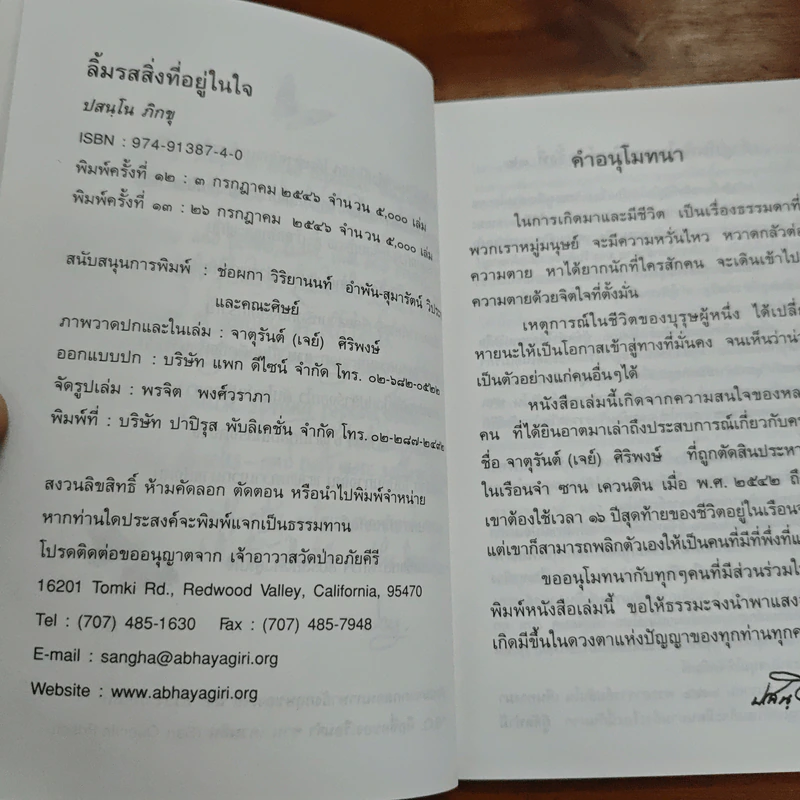 ลิ้มรสสิ่งที่อยู่ในใจ
ปสนฺโน ภิกขุ
ISBN : 974-91387-4-0
พิมพ์ครั้งที่ ๑๒ : ๓ กรกฎาคม ๒๕๔๖ จำนวน ๕,๐๐๐ เล่ม
พิมพ์ครั้งที่ ๑๓ : ๒๖ กรกฎาคม ๒๕๔๖ จำนวน ๕,๐๐๐ เล่ม
สนับสนุนการพิมพ์ : ช่อผกา วิริยานนท์ อำพัน-สุมารัตน์
และคณะศิษย์
ภาพวาดปกและในเล่ม : จาตุรันต์ (เจย์) ศิริพงษ์
ออกแบบปก : บริษัท แพก ดีไซน์ จำกัด โทร. ๐๒-๖๘๒-๐๕๒๒
จัดรูปเล่ม : พรจิต พงศ์วราภา
พิมพ์ที่ : บริษัท ปาปิรุส พับลิเคชั่น จำกัด โทร. ๐๒-๒๘๗-๒๔๙๒
สงวนลิขสิทธิ์ ห้ามคัดลอก ตัดตอน หรือนำไปพิมพ์จำหน่าย
หากท่านใดประสงค์จะพิมพ์แจกเป็นธรรมทาน
โปรดติดต่อขออนุญาตจาก เจ้าอาวาสวัดป่าอภัยคีรี
16201 Tomki Rd., Redwood Valley, California, 95470
Tel : (707) 485-1630 Fax : (707) 485-7948
E-mail : sangha@abhayagiri.org
Website : www.abhayagiri.org
คำอนุโมทนา
ในการเกิดมาและมีชีวิต เป็นเรื่องธรรมดาที่
พวกเราหมู่มนุษย์ จะมีความหวั่นไหว หวาดกลัวต่อ
ความตาย หาได้ยากนักที่ใครสักคน จะเดินเข้าไป
ความตายด้วยจิตใจที่ตั้งมั่น
เหตุการณ์ในชีวิตของบุรุษผู้หนึ่ง ได้เปลี่
หายนะให้เป็นโอกาสเข้าสู่ทางที่มั่นคง จนเห็นว่าน่า
เป็นตัวอย่างแก่คนอื่นๆได้
หนังสือเล่มนี้เกิดจากความสนใจของหล
คน ที่ได้ยินอาตมาเล่าถึงประสบการณ์เกี่ยวกับคน
ชื่อ จาตุรันต์ (เจย์) ศิริพงษ์ ที่ถูกตัดสินประหา
ในเรือนจำ ซาน เควนติน เมื่อ พ.ศ. ๒๕๔๒ ถึ
เขาต้องใช้เวลา ๑๖ ปีสุดท้ายของชีวิตอยู่ในเรือนจ
แต่เขาก็สามารถพลิกตัวเองให้เป็นคนที่มีที่พึ่งที่แ
ขออนุโมทนากับทุกๆคนที่มีส่วนร่วมใ
พิมพ์หนังสือเล่มนี้ ขอให้ธรรมะจงนำพาแสง
เกิดมีขึ้นในดวงตาแห่งปัญญาของทุกท่านทุกค